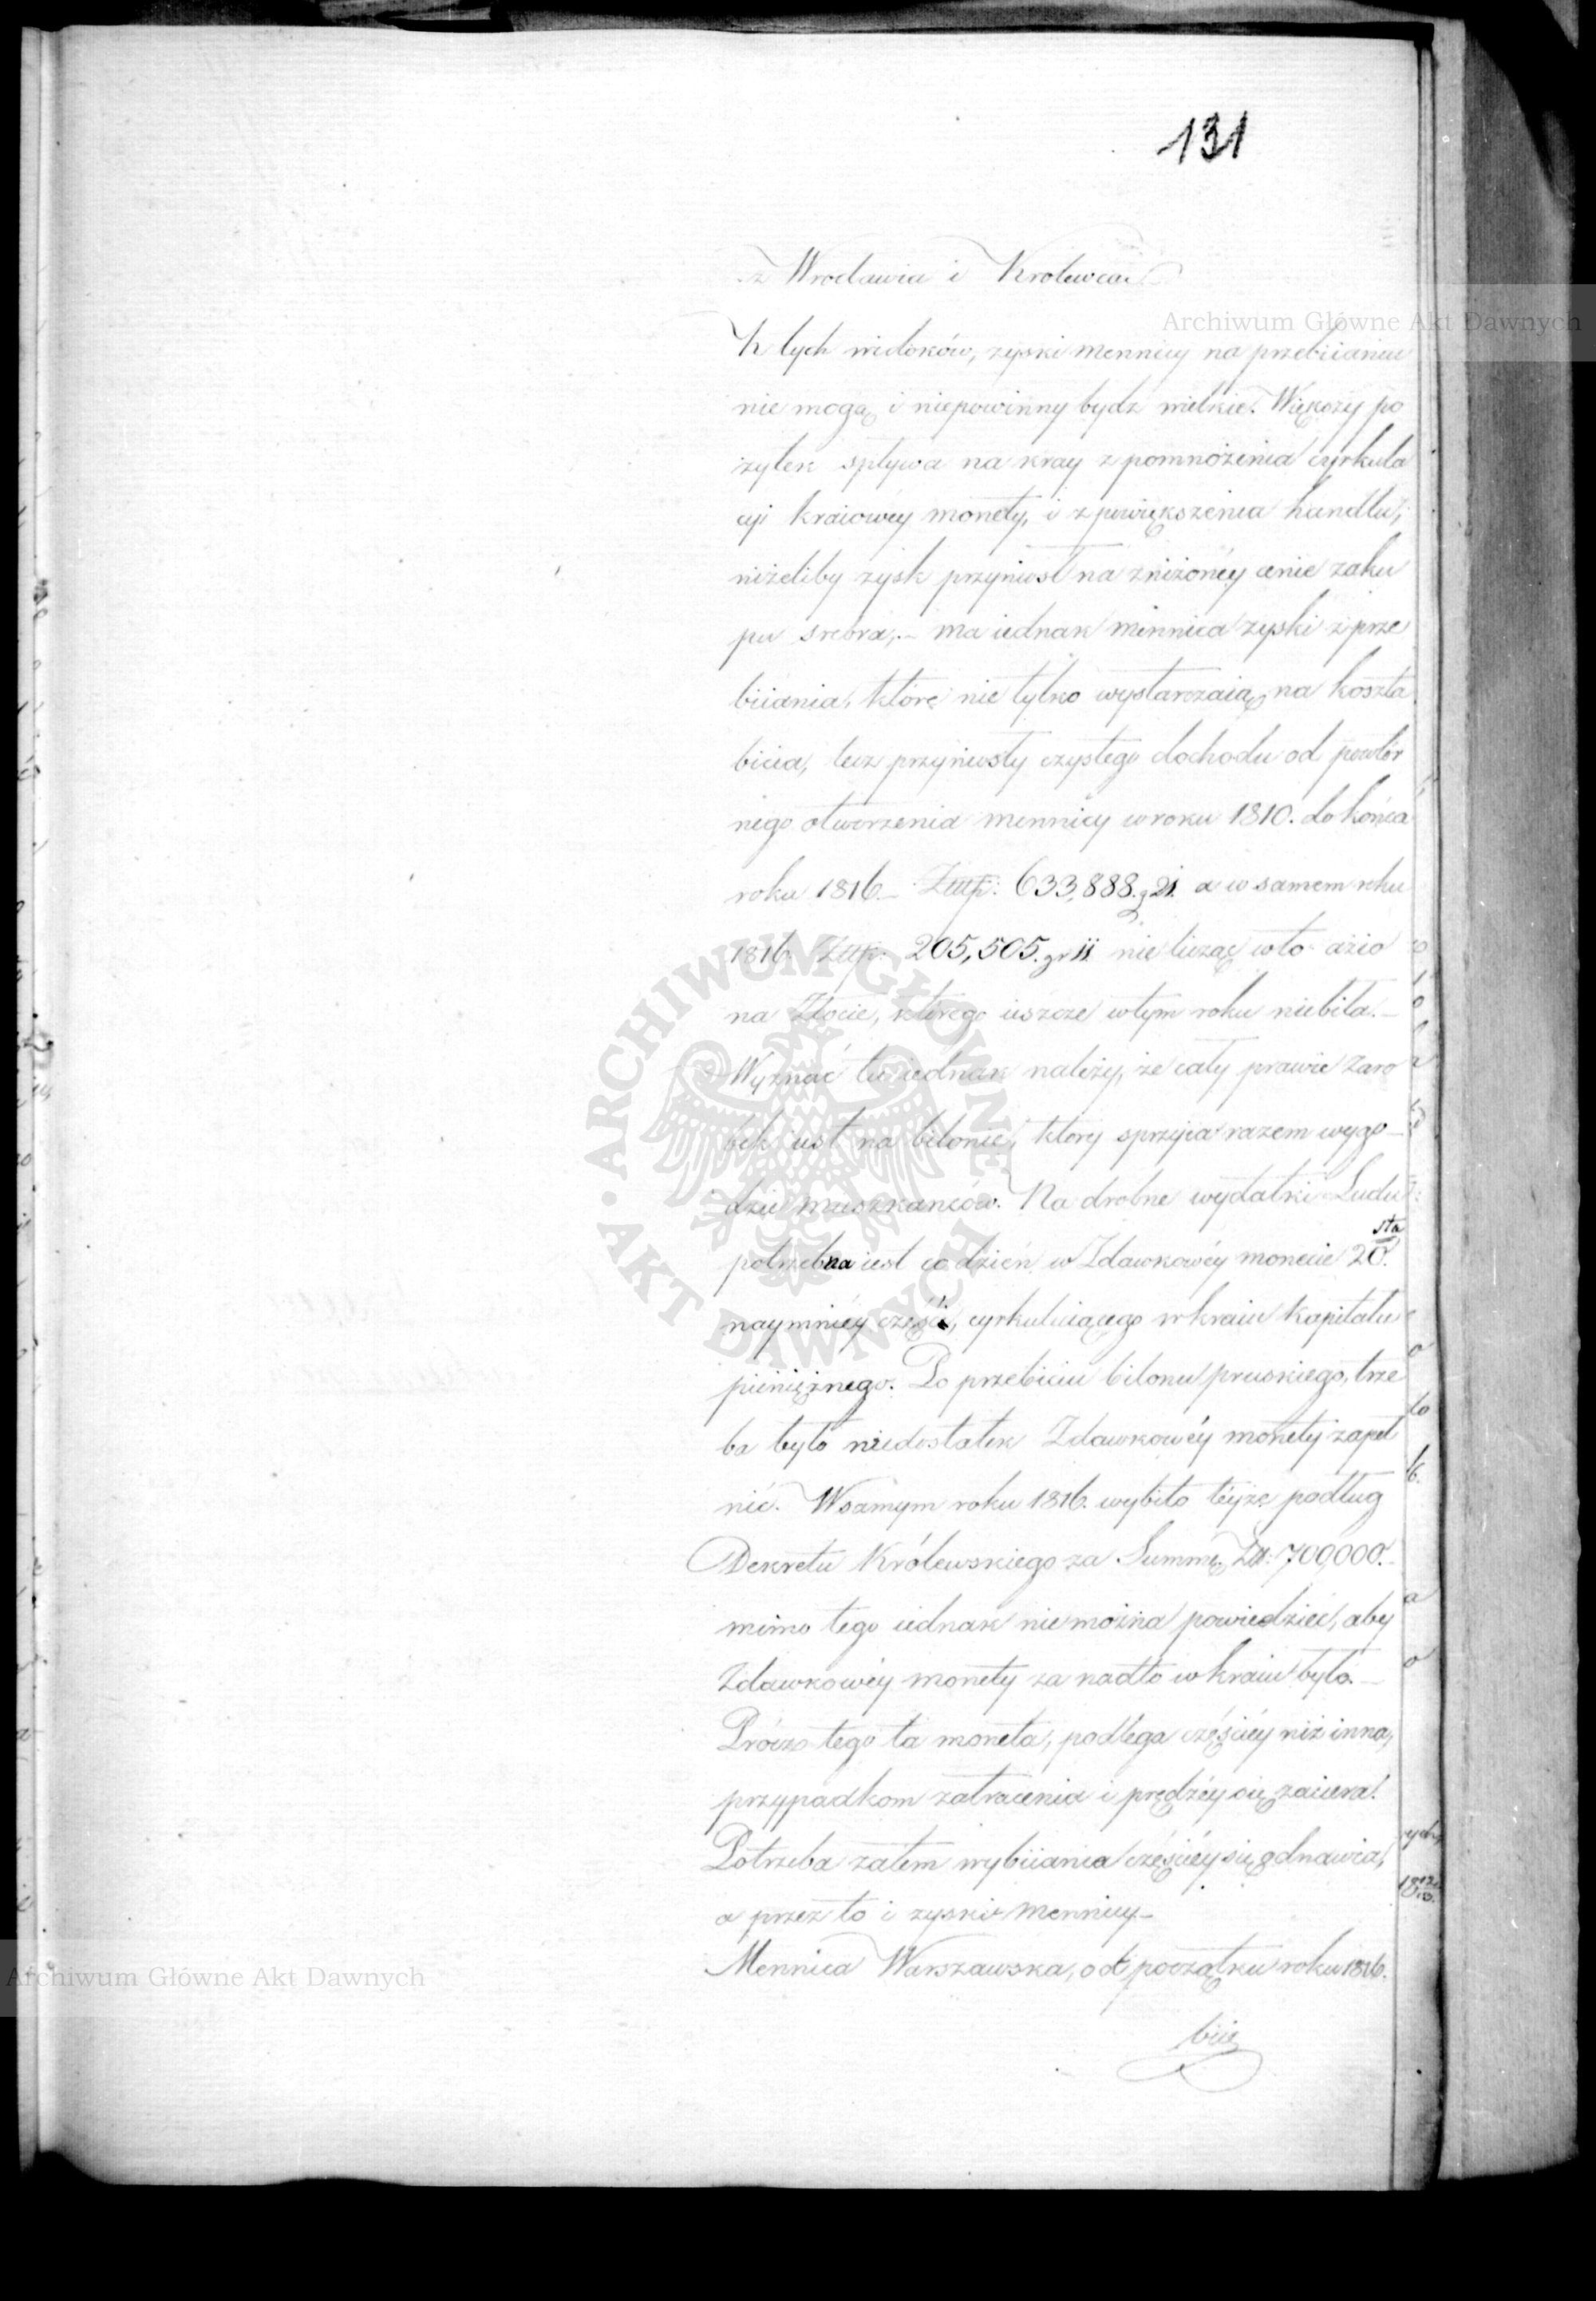 131
z Wrocławia i Krolewca.
Z tych widoków, zyski mennicy na przebiianiu
nie mogą i niepowinny bydz wielkie. Większy po
żytek spływa na kray z pomnożenia cyrkula
cyi kraiowéy monety, i z powiększenia handlu,
niżeliby zysk przyniosł na zniżonéy cenie zaku
pu srebra,- ma iednak mennica zyski z prze
biiania, które nie tylko wystarczaią na koszta
bicia, lecz przyniosły czystego dochodu od powtór
nego otworzenia mennicy w roku 1810. do końca
roku 1816.- Złtp: 633,888. g 21. a w samem roku
1816 Złtp: 205,505. gr 11 nie licząc w to ażio
na Złocie, którego ieszcze w tym roku niebiła.-
Wyznać tu iednak należy, że cały prawie zaro
bek iest na bilonie, ktory sprzyia razem wygo-
dzie mieszkanców. Na drobne wydatki Ludu
potrzebna iest co dzień w Zdawkowéy monecie 20.sta
naymniéy część, cyrkuluiącego w kraiu kapitału
pieniężnego. Po przebiciu bilonu pruskiego, trze
ba było niedostatek Zdawkowéy monety zapeł
nić. W samym roku 1816. wybito téyże podług
Dekretu Królewskiego za Summę Złt: 700,000.-
mimo tego iednak nie można powiedzieć, aby
Zdawkowéy monety za nadto w kraiu było.-
Prócz tego ta moneta, podlega częściéy niż inna,
przypadkom zatracenia i prędzéy się zaciera.
Potrzeba zatem wybiiania częściéy się odnawia,
a przez to i zyski mennicy.-
Mennica Warszawska, od początku roku 1816.
biie
Archiwum Główne Akt Dawnych
ARCHIWUM GŁÓWNE
AKT DAWNYCH
Archiwum Główne Akt Dawnych
Archiwum Główne Akt Dawnych